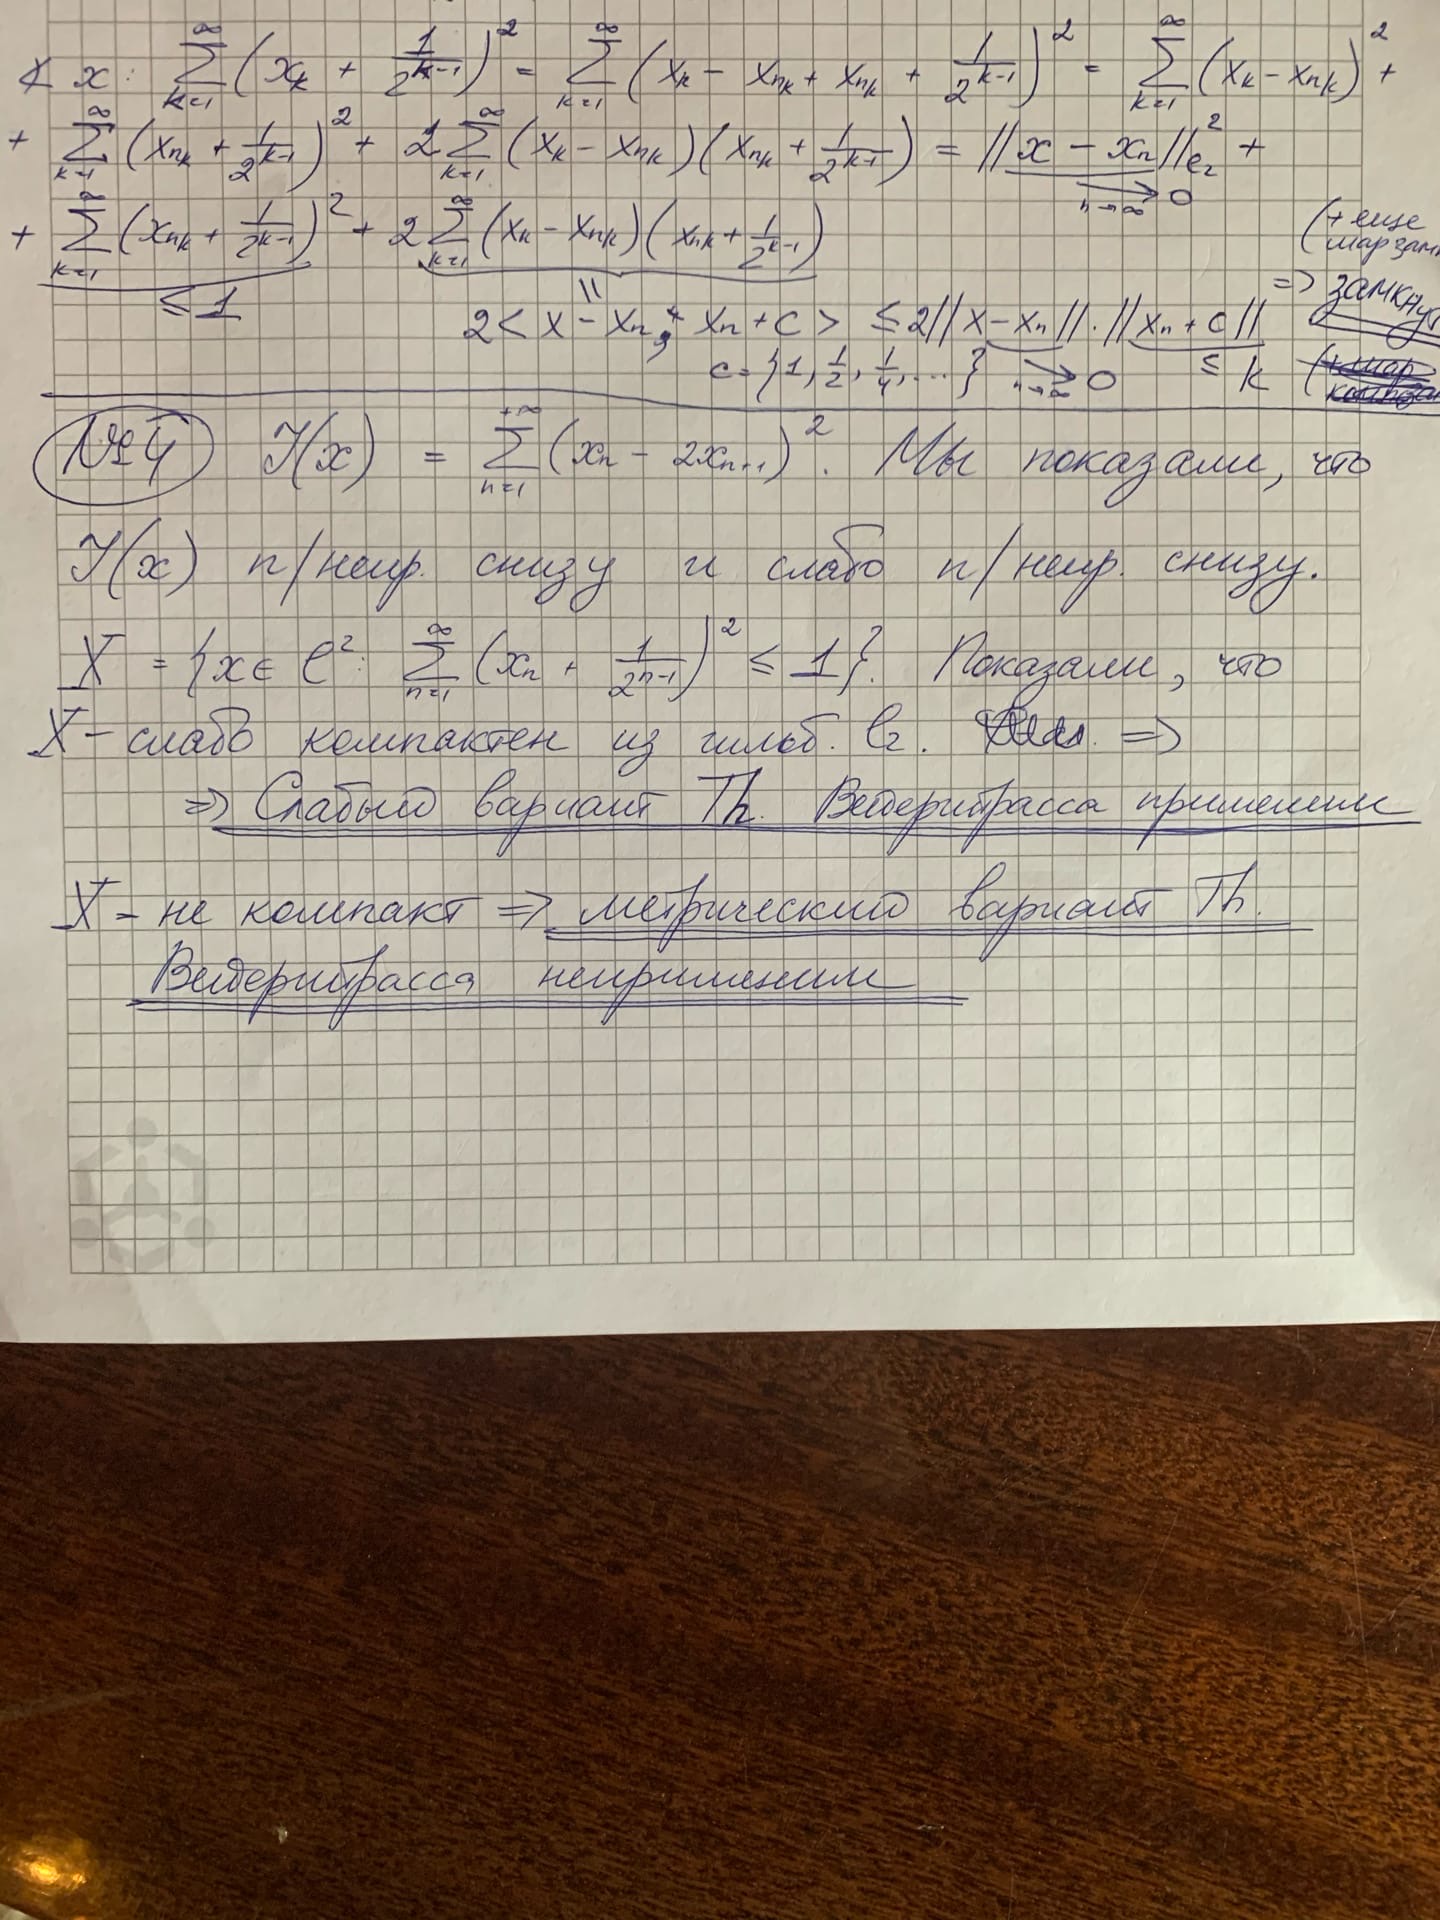 ∢ x: ∑_{k=1}^{∞} (x_k + 1/2^{k-1})^2 = ∑_{k=1}^{∞} (x_k - x_{n_k} + x_{n_k} + 1/2^{k-1})^2 = ∑_{k=1}^{∞} (x_k - x_{n_k})^2 +
+ ∑_{k=1}^{∞} (x_{n_k} + 1/2^{k-1})^2 + 2∑_{k=1}^{∞} (x_k - x_{n_k})(x_{n_k} + 1/2^{k-1}) = ||x - x_n||^2_{l_2} +
n→∞ → 0
+ ∑_{k=1}^{∞} (x_{n_k} + 1/2^{k-1})^2 + 2∑_{k=1}^{∞} (x_k - x_{n_k})(x_{n_k} + 1/2^{k-1})
(+ еще
шар
≤ 1
=> замкнут
2<x - x_n, x_n + c> ≤ 2||x - x_n||·||x_n + c||
c = {1, 1/2, 1/4, ...} n→∞ → 0 ≤ k
№4 J(x) = ∑_{n=1}^{+∞} (x_n - 2x_{n+1})^2. Мы показали, что
J(x) п/непр. снизу и слабо п/непр. снизу.
X = {x ∈ l^2: ∑_{n=1}^{∞} (x_n + 1/2^{n-1})^2 ≤ 1}. Показали, что
X - слабо компактен из гильб. l_2. =>
=> Слабый вариант Th. Вейерштрасса применим
X - не компакт => метрический вариант Th.
Вейерштрасса неприменим